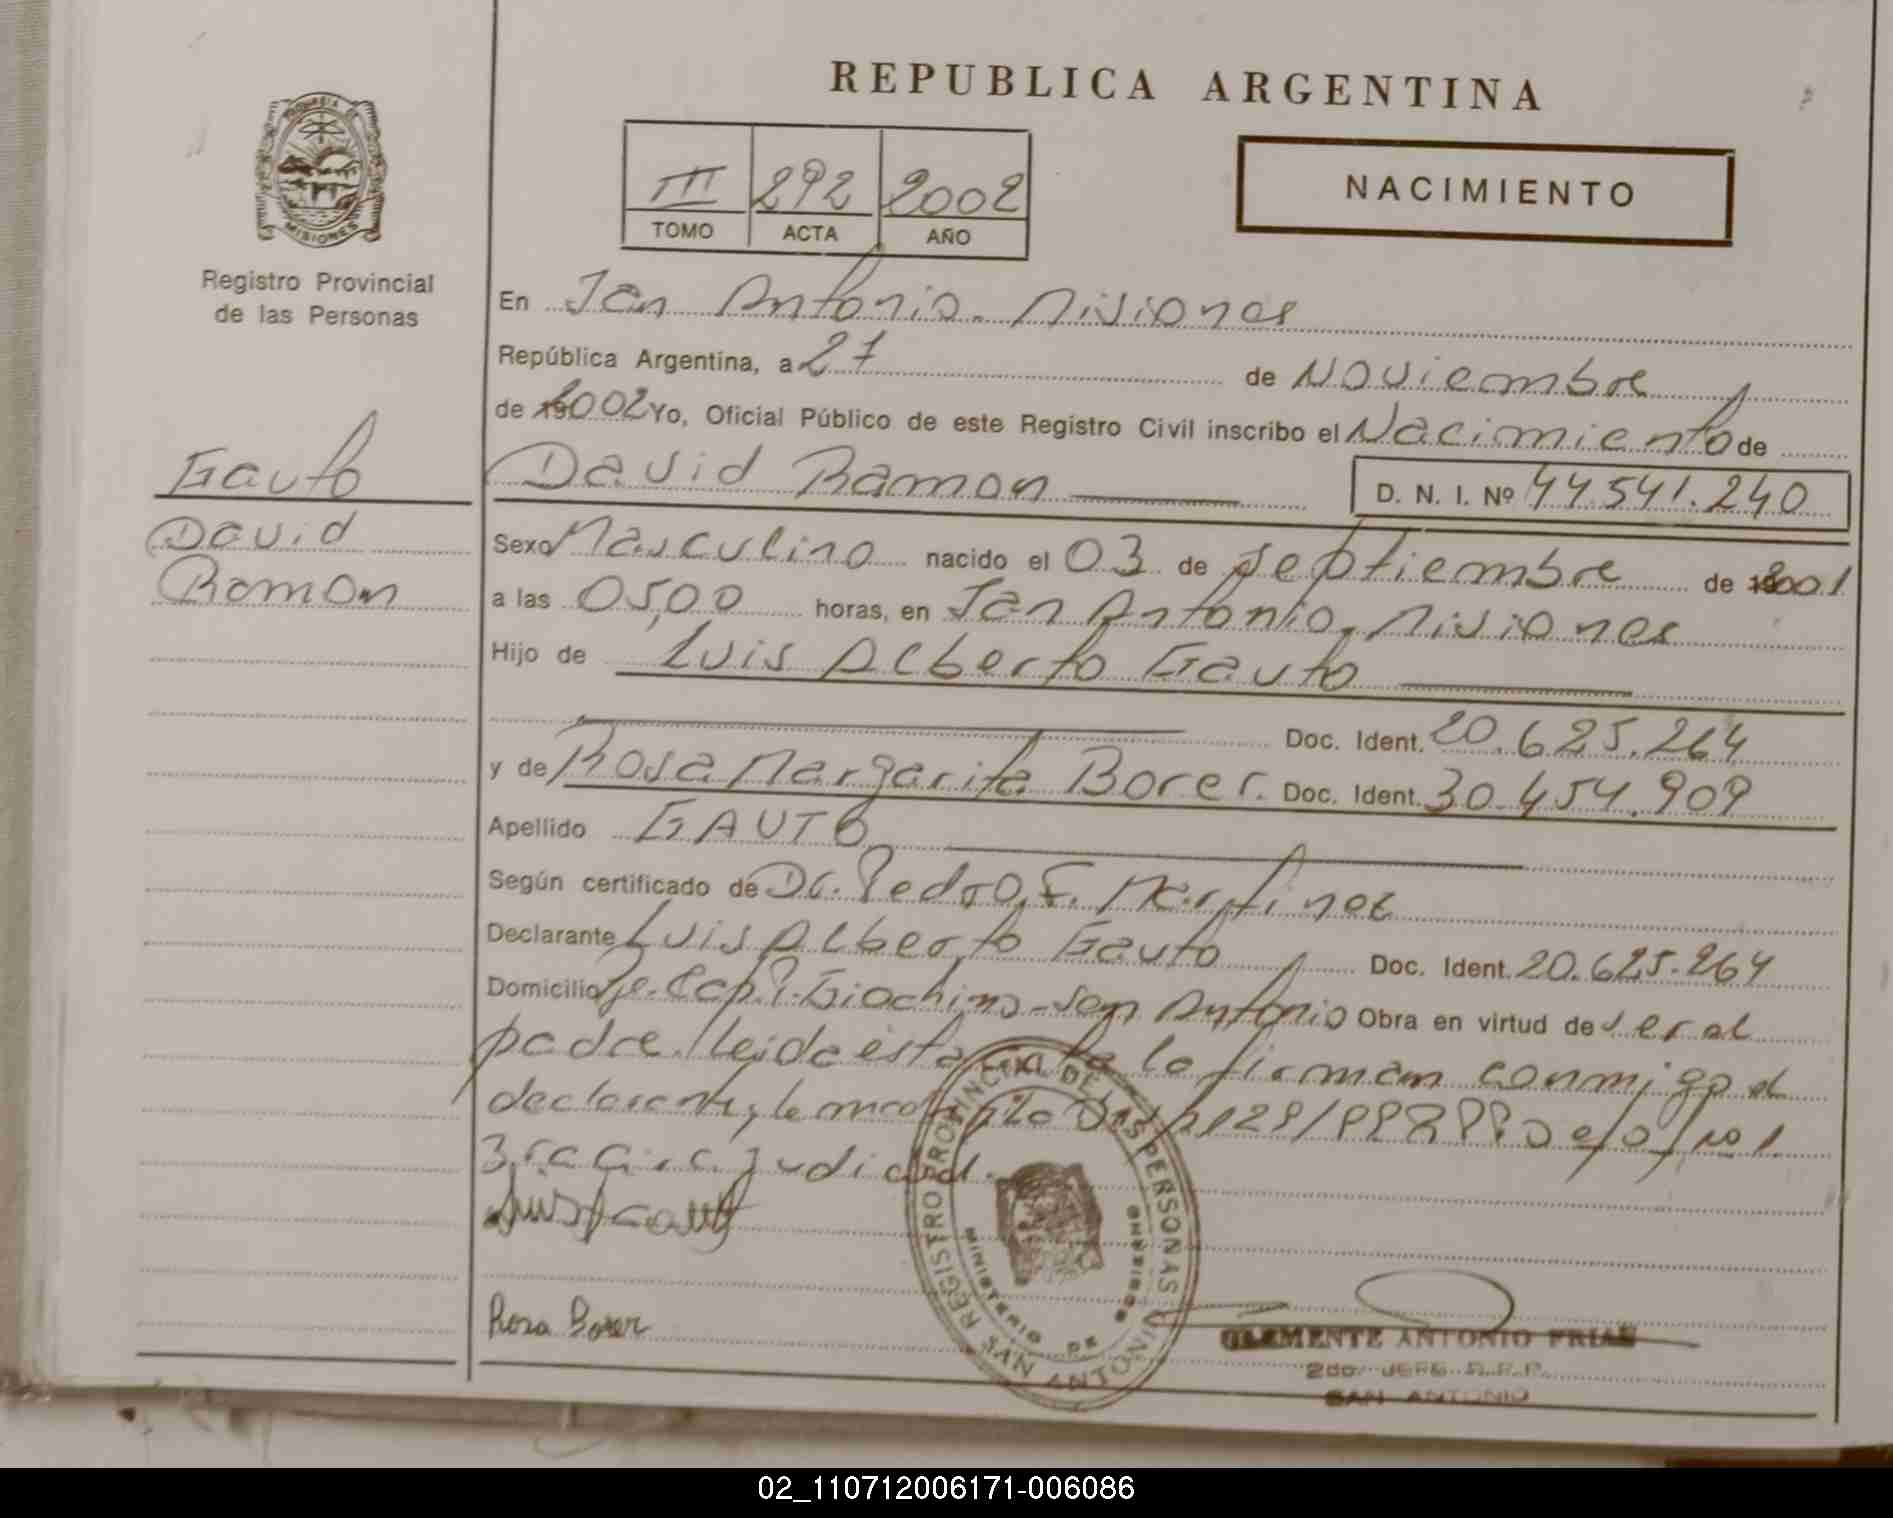 REPUBLICA ARGENTINA
PROVINCIA DE
MISIONES
Registro Provincial
de las Personas
III 292 2002
TOMO ACTA AÑO
NACIMIENTO
En San Antonio. Misiones
República Argentina, a 27 de Noviembre
de 2002 Yo, Oficial Público de este Registro Civil inscribo el Nacimiento de
Gauto
David Ramon D. N. I. Nº 44.541.240
David
Ramon
Sexo Masculino nacido el 03 de Septiembre de 2001
a las 05,00 horas, en San Antonio, Misiones
Hijo de Luis Alberto Gauto
Doc. Ident. 20.625.264
y de Rosa Margarita Borer. Doc. Ident. 30.454.909
Apellido GAUTO
Según certificado de Dr. Pedro F. Martinez
Declarante Luis Alberto Gauto Doc. Ident. 20.625.264
Domicilio Giachino - San Antonio Obra en virtud de ser el
padre. leida esta la firman conmigo el
declarante, la madre
judicial.
Rosa Borer
REGISTRO PROVINCIAL DE LAS PERSONAS
MINISTERIO DE GOBIERNO
SAN ANTONIO
CLEMENTE ANTONIO FRIAS
2do. JEFE R.P.P.
SAN ANTONIO
02_110712006171-006086